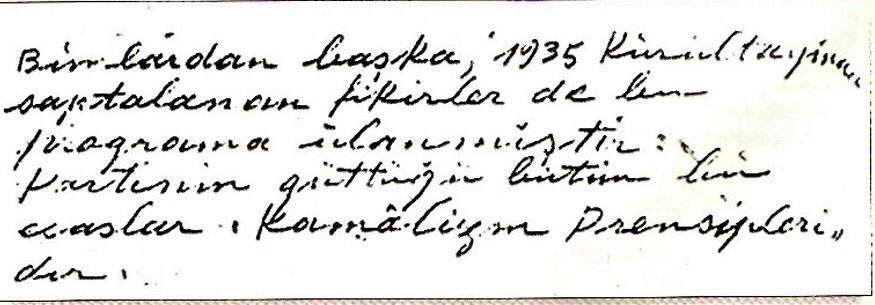 Bunlardan başka, 1935 Kurultayında
saptalanan fikirler de bu
programa ulanmıştır:
Partinin güttüğü bütün bu
esaslar, Kamâlizm Prensipleri„
dir.